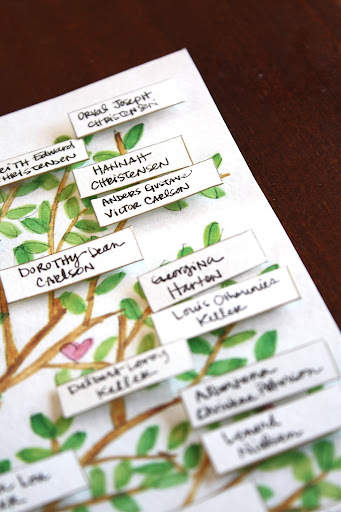 Orval Joseph
Christensen
Keith Edward
Christensen
Hannah
Christensen
Anders Gustave
Victor Carlson
Dorothy Dean
Carlson
Georgina
Harton
Louis
Keller
Delbert Leroy
Keller
Christine
Lenard